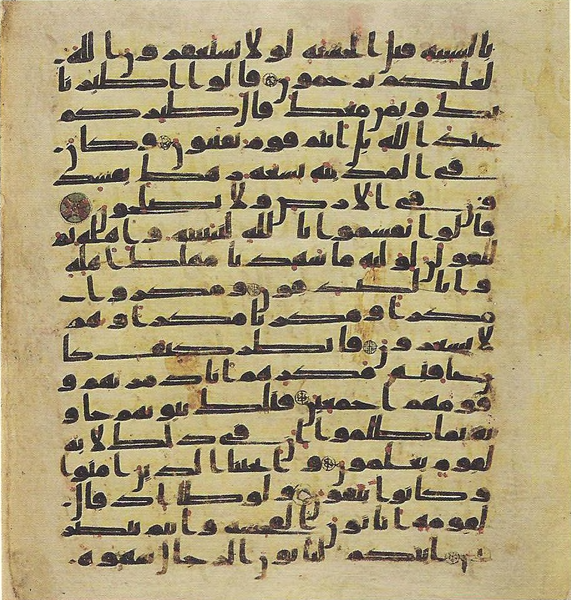 بالسيئة قبل الحسنة لولا تستغفرون الله
لعلكم ترحمون قالوا اطيرنا
بك وبمن معك قال طئركم
عند الله بل انتم قوم تفتنون وكان
في المدينة تسعة رهط يفسد
ون في الارض ولا يصلحون
قالوا تقسموا بالله لنبيتنه واهله ثم
لنقولن لوليه ما شهدنا مهلك اهله
وانا لصدقون ومكروا
مكرا ومكرنا مكرا وهم
لا يشعرون فانظر كيف كا
ن عقبة مكرهم انا دمرنهم و
قومهم اجمعين فتلك بيوتهم خاو
ية بما ظلموا ان في ذلك لاية
لقوم يعلمون وانجينا الذين امنوا
وكانوا يتقون ولوطا اذ قال
لقومه اتاتون الفحشة وانتم تبصر
ون ائنكم لتاتون الرجال شهوة